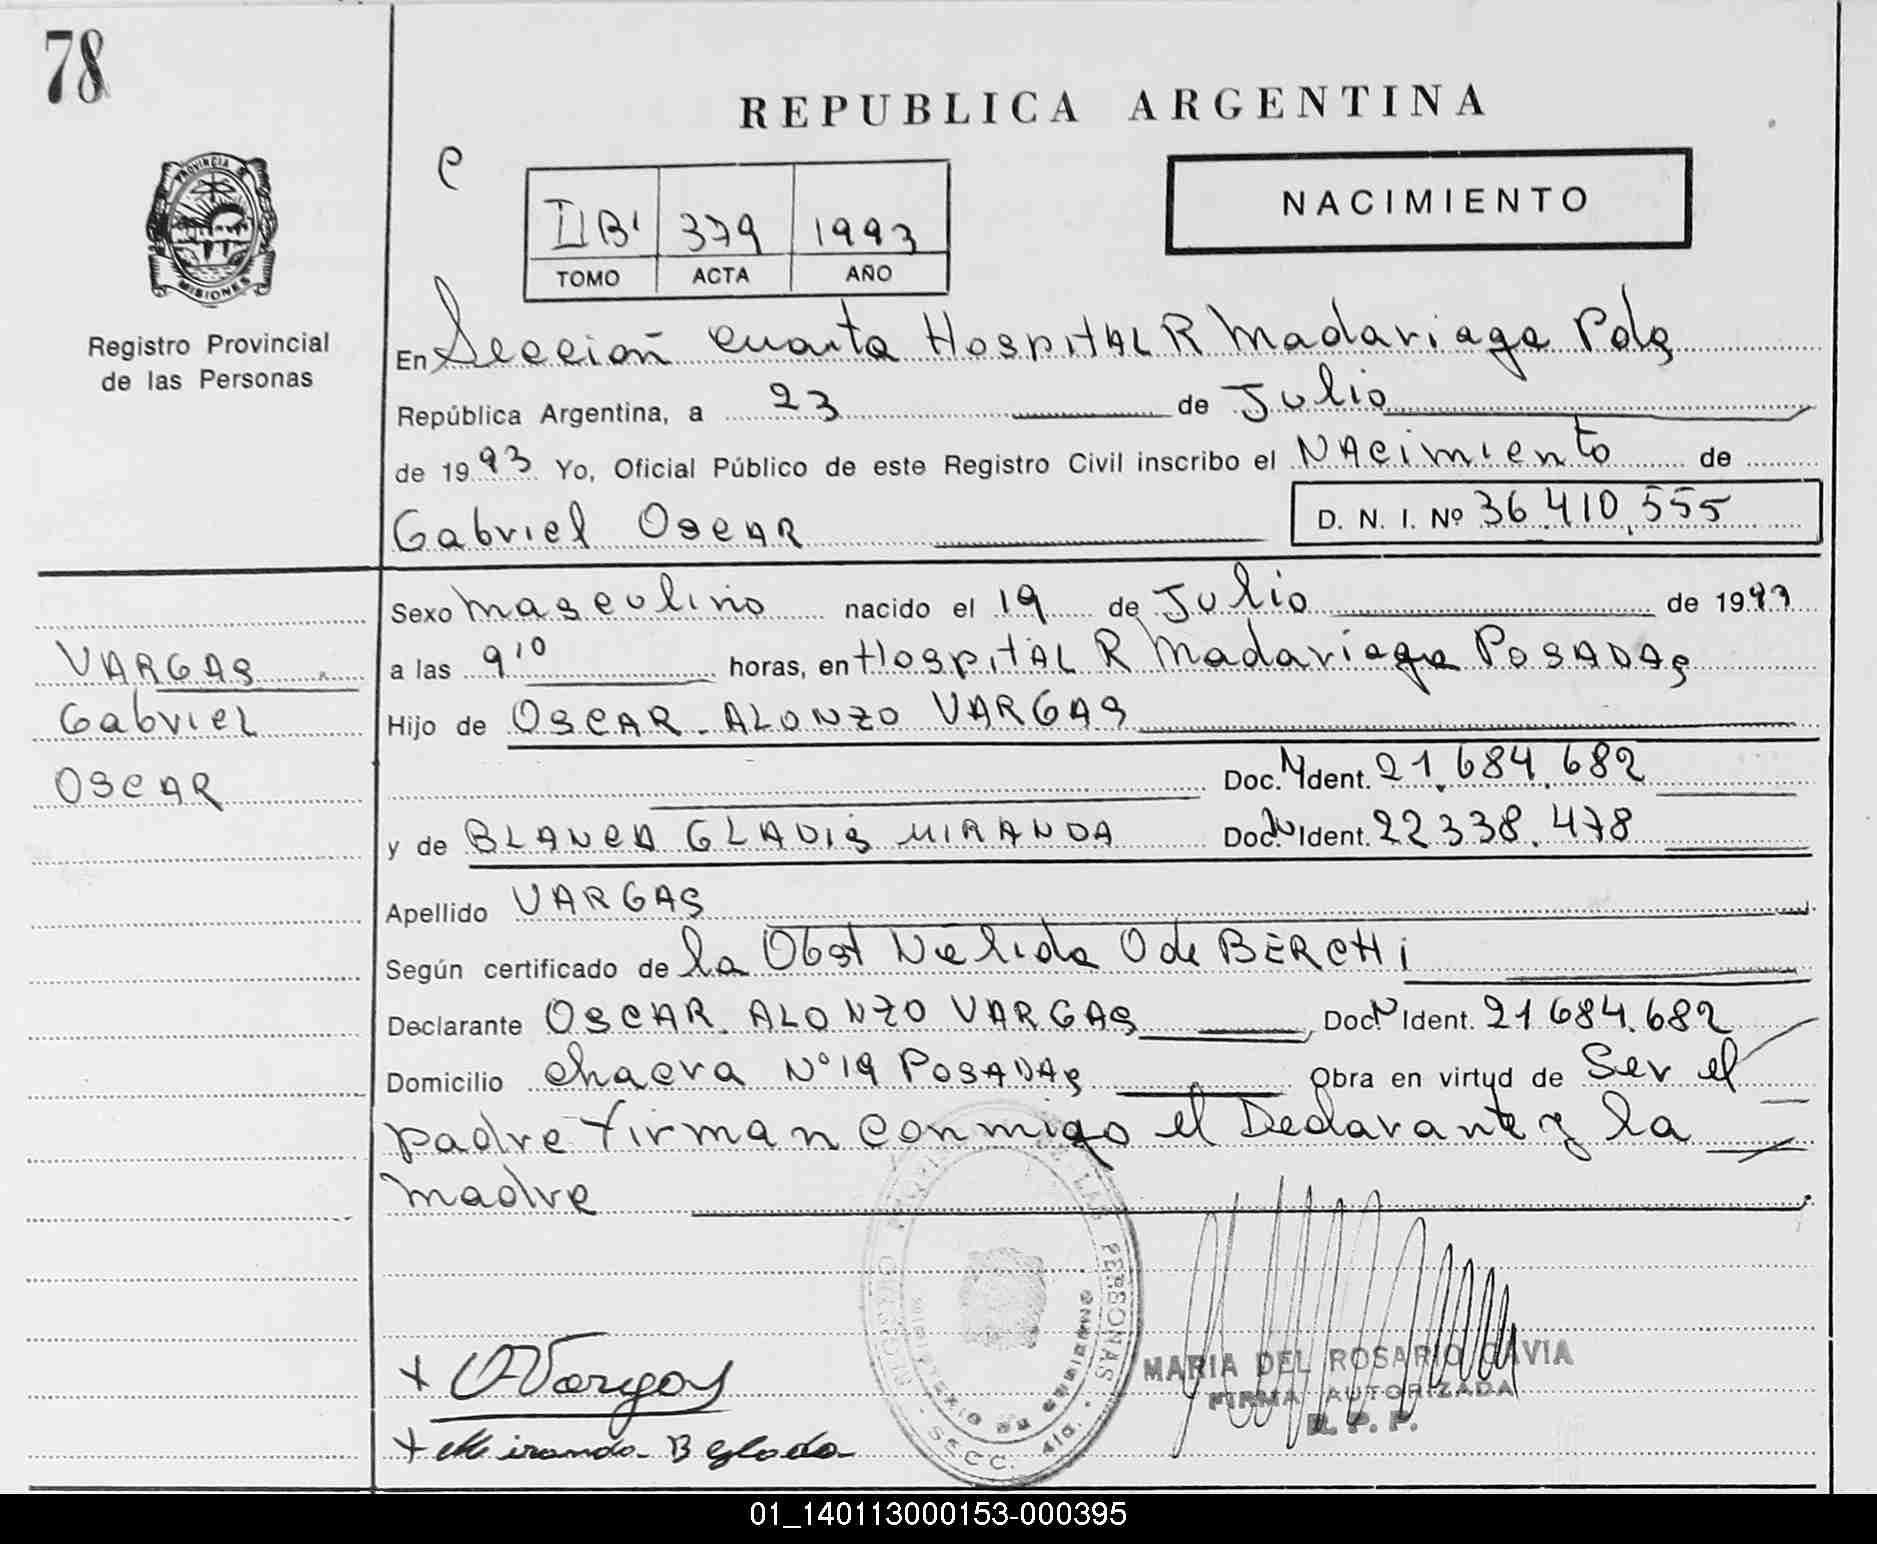 78
REPUBLICA ARGENTINA
NACIMIENTO
379 1993
TOMO ACTA AÑO
PROVINCIA
MISIONES
Registro Provincial
de las Personas
En Sección cuarta HospitAL R Madariaga Pdas
República Argentina, a 23 de Julio
de 1993 Yo, Oficial Público de este Registro Civil inscribo el NAcimiento de
Gabriel OscAR D. N. I. Nº 36.410.555
VARGAS
Gabriel
OSCAR
Sexo Masculino nacido el 19 de Julio de 1993
a las 9 10 horas, en HospitAL R Madariaga POSADAS
Hijo de OSCAR ALONZO VARGAS
Doc. N Ident. 21.684.682
y de BLANCA GLADIS MIRANDA Doc. N Ident. 22338.478
Apellido VARGAS
Según certificado de la Obst Nelida O de BERCHi
Declarante OSCAR ALONZO VARGAS Doc N Ident. 21684.682
Domicilio chacra Nº 19 POSADAS Obra en virtud de Ser el
padre Firman conmigo el Declarante y la
madre
PERSONAS
SECC. 4ta.
MARIA DEL ROSARIO GAVIA
FIRMA AUTORIZADA
R. P. P.
+ O Vargas
+ Miranda B
01_140113000153-000395